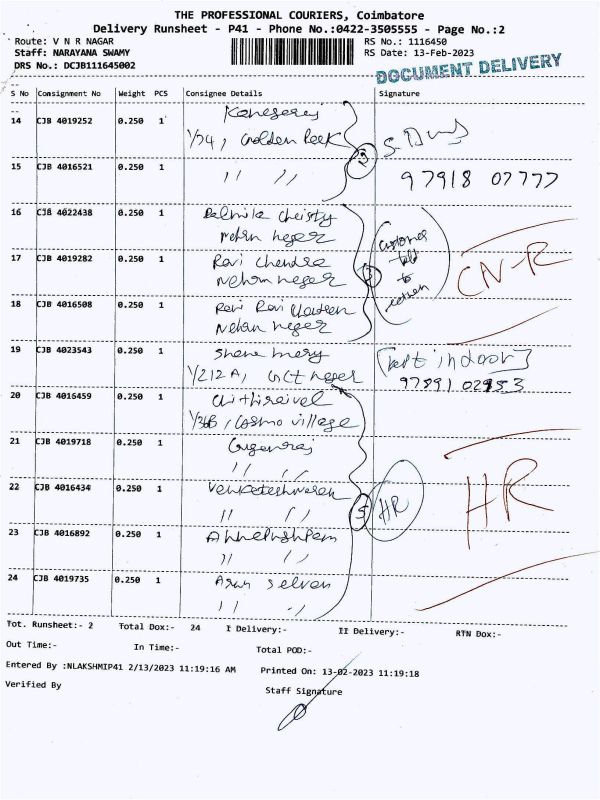 THE PROFESSIONAL COURIERS, Coimbatore
Delivery Runsheet - P41 - Phone No.:0422-3505555 - Page No.:2
Route: V N R NAGAR RS No.: 1116450
Staff: NARAYANA SWAMY RS Date: 13-Feb-2023
DRS No.: DCJB111645002
DOCUMENT DELIVERY
S No Consignment No Weight PCS Consignee Details Signature
14 CJB 4019252 0.250 1
1/74, Golden
15 CJB 4016521 0.250 1 " "
97918 07777
16 CJB 4022438 0.250 1 Christy
Nehru neger
customer
told
to
17 CJB 4019282 0.250 1 Ravi Chendra
Nehru neger
3
CN-R
18 CJB 4016508 0.250 1 Ravi
Nehru neger
19 CJB 4023543 0.250 1 Shene mery [kept indoor]
1/212A, GCT neger 97891 02953
20 CJB 4016459 0.250 1
1/36B, Cosmo village
21 CJB 4019718 0.250 1
" "
22 CJB 4016434 0.250 1 Venketeshweren
" "
5 HR HR
23 CJB 4016892 0.250 1
" "
24 CJB 4019735 0.250 1 Arun selven
" "
Tot. Runsheet:- 2 Total Dox:- 24 I Delivery:- II Delivery:- RTN Dox:-
Out Time:- In Time:- Total POD:-
Entered By :NLAKSHMIP41 2/13/2023 11:19:16 AM Printed On: 13-02-2023 11:19:18
Verified By Staff Signature